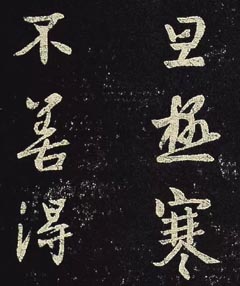 旦極寒
不善得